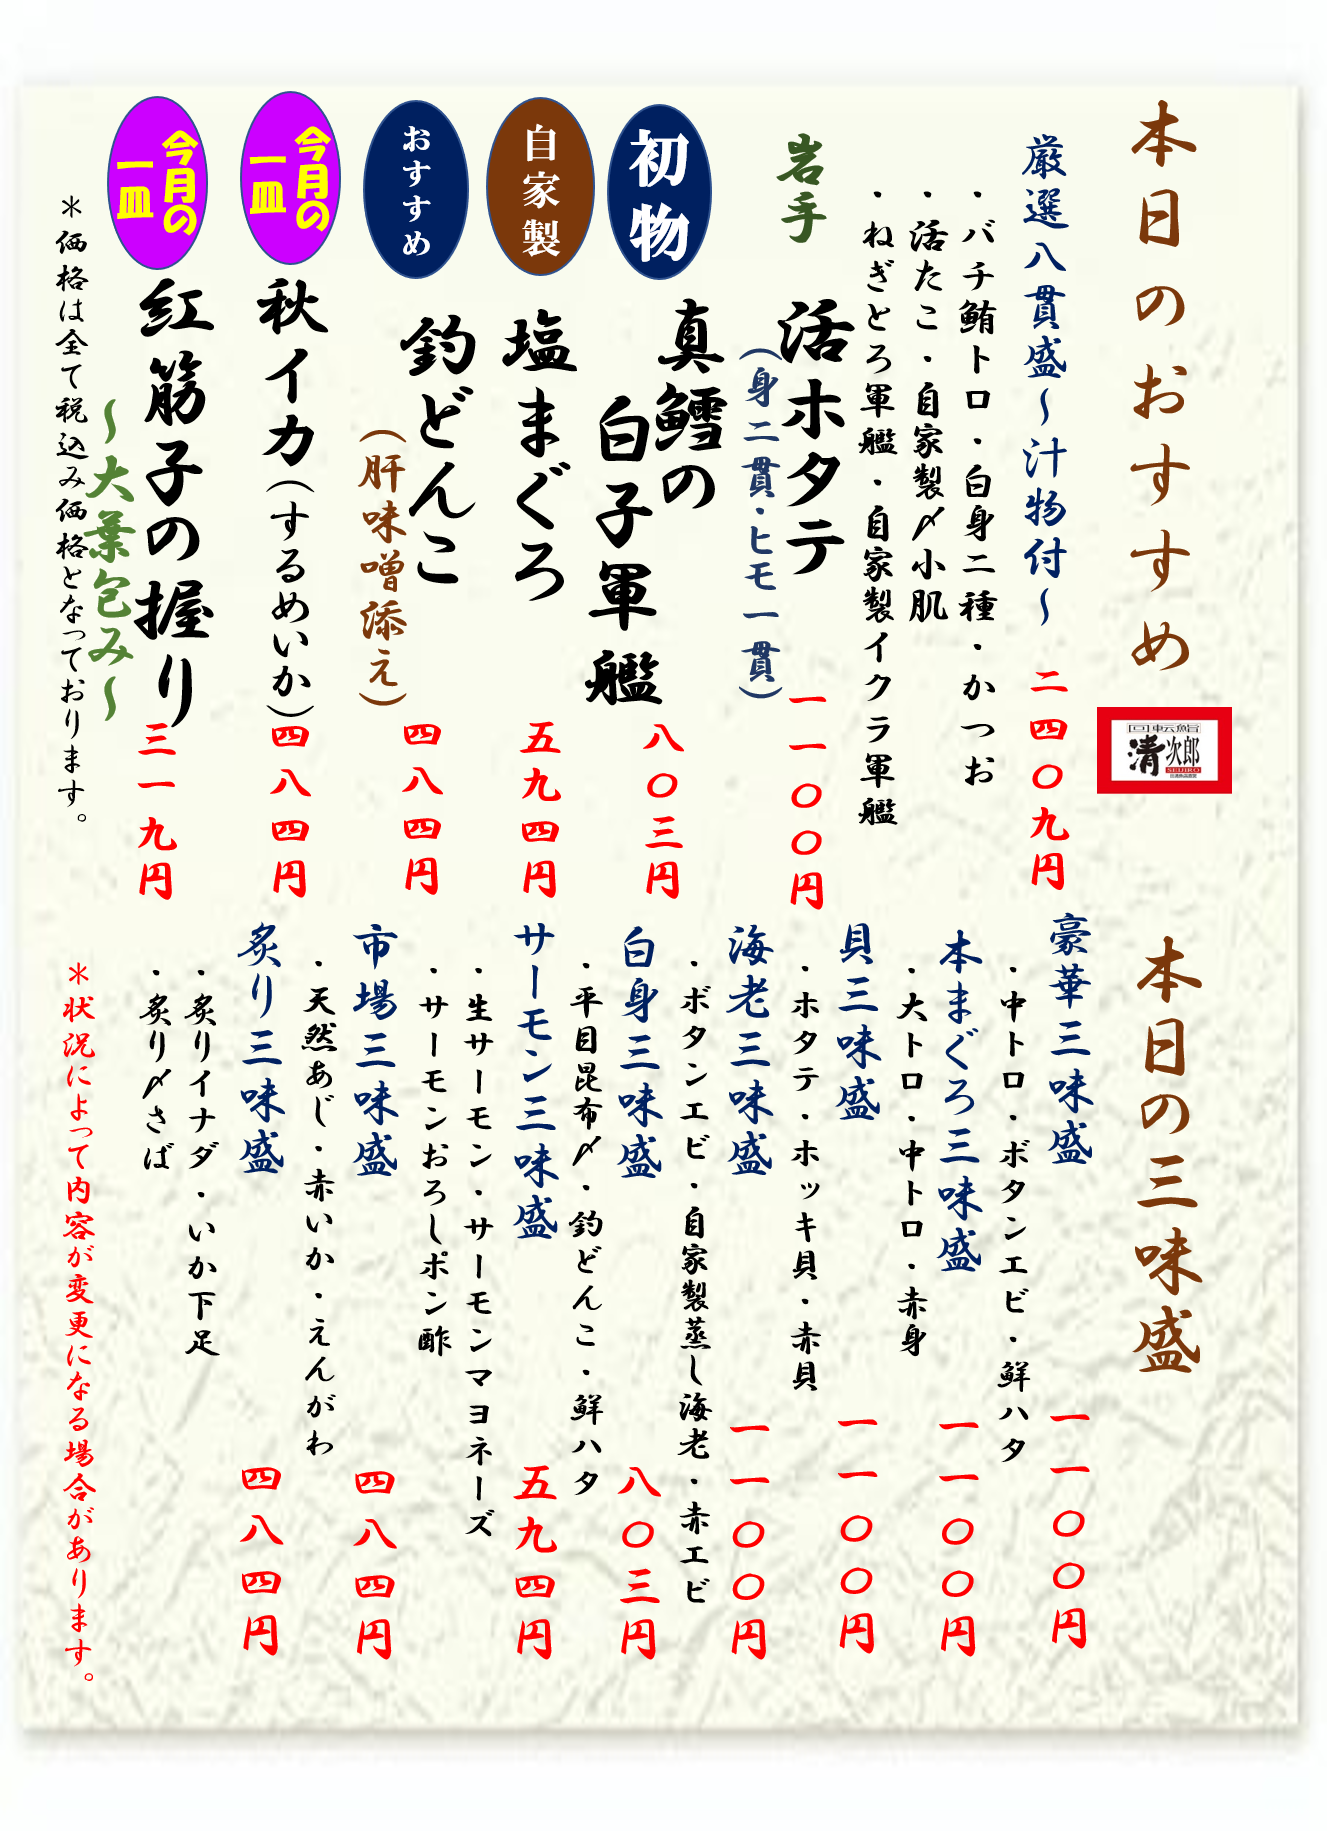 本日のおすすめ
回転鮨
清次郎
SEIJIRO
厳選八貫盛～汁物付～
二四〇九円
・バチ鮪トロ・白身二種・かつお
・活たこ・自家製〆小肌
・ねぎとろ軍艦・自家製イクラ軍艦
岩手
活ホタテ
(身二貫・ヒモ一貫)
一一〇〇円
初物
真鱈の
白子軍艦
八〇三円
自家製
塩まぐろ
五九四円
おすすめ
釣どんこ
(肝味噌添え)
四八四円
今月の
一皿
秋イカ(するめいか)
四八四円
今月の
一皿
紅筋子の握り
～大葉包み～
三一九円
＊価格は全て税込み価格となっております。
本日の三味盛
豪華三味盛
一一〇〇円
・中トロ・ボタンエビ・鮮ハタ
本まぐろ三味盛
一一〇〇円
・大トロ・中トロ・赤身
貝三味盛
一一〇〇円
・ホタテ・ホッキ貝・赤貝
海老三味盛
一一〇〇円
・ボタンエビ・自家製蒸し海老・赤エビ
白身三味盛
八〇三円
・平目昆布〆・釣どんこ・鮮ハタ
サーモン三味盛
五九四円
・生サーモン・サーモンマヨネーズ
・サーモンおろしポン酢
市場三味盛
四八四円
・天然あじ・赤いか・えんがわ
炙り三味盛
四八四円
・炙りイナダ・いか下足
・炙り〆さば
＊状況によって内容が変更になる場合があります。